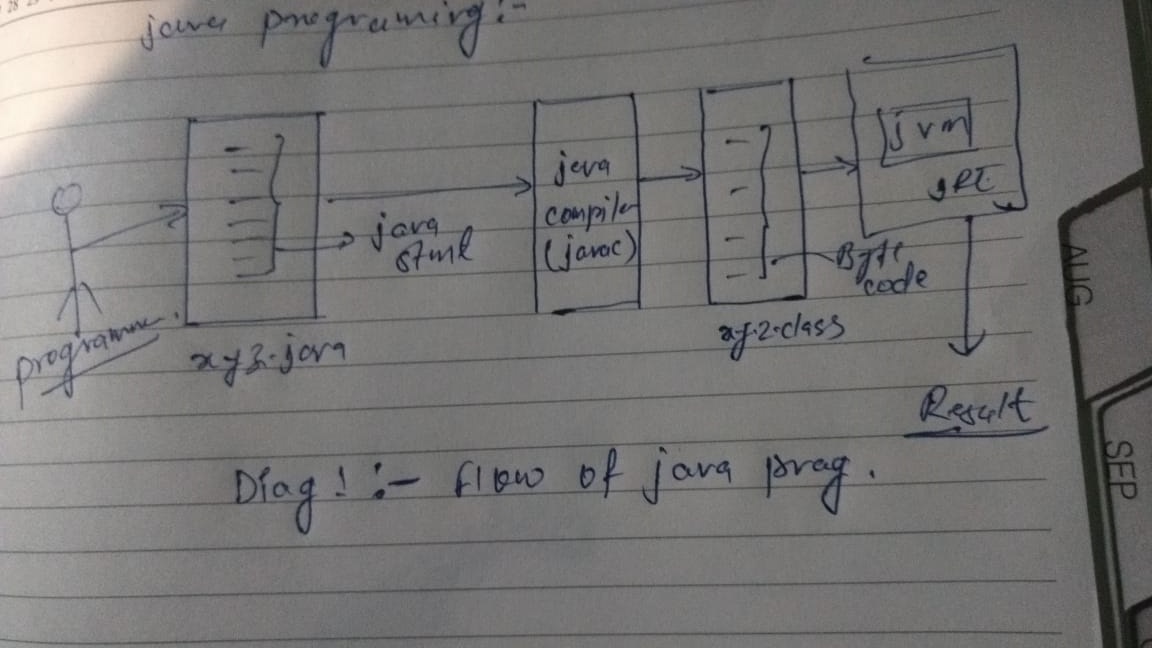 28
java programing :-
java
stmt
java
compiler
(javac)
jvm
JRE
Byte
code
programme.
xyz.java
xyz.class
Result
Diag! :- flow of java prog.
AUG
SEP